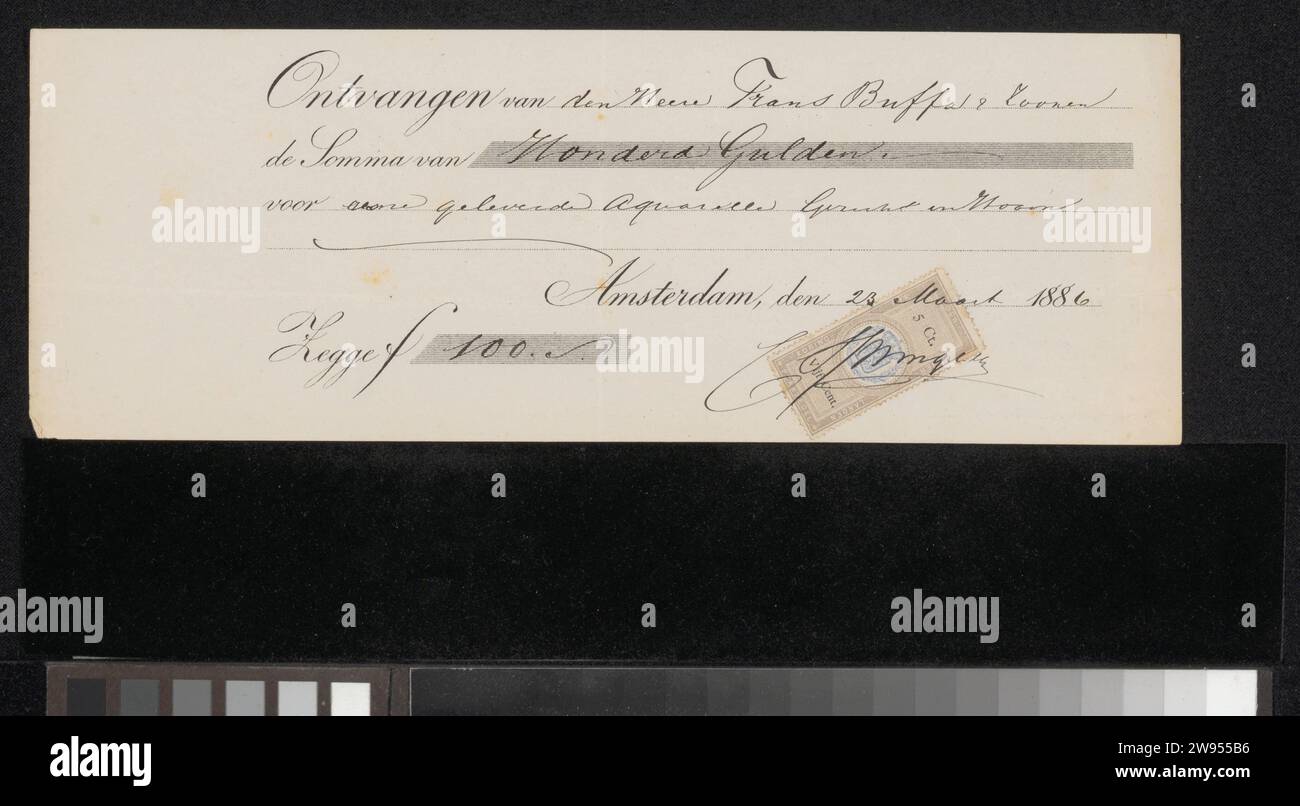 Ontvangen van den Heere Frans Buffa & Zoonen
de Somma van Honderd Gulden.
voor eene geleverde Aquarelle Gracht in Hoorn
Amsterdam, den 23 Maart 1886
Zegge f 100.
5 Ct.
Vijf Cent.
alamy
Image ID: 2W955B6
www.alamy.com